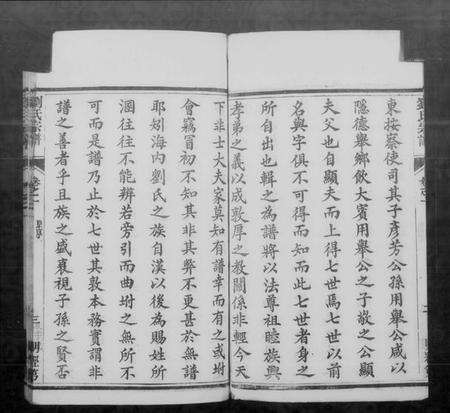 東按蔡使司其子彥芳公孫用舉公咸以
隱德舉鄉飲大賓用舉公之子敬之公顯
夫父也自顯夫而上得七世焉七世以前
名與字俱不可得而知而此七世者身之
所自出也輯之為譜將以法尊祖睦族興
孝弟之義以成敦厚之教關係非輕今天
下非士大夫家莫如有譜幸而有之或坿
會竊冒初不知其非其弊不更甚於無譜
耶矧海內劉氏之族自漢以後為賜姓所
溷往往不能辨若旁引而曲坿之無所不
可而是譜乃止於七世其敦本務實謂非
譜之善者乎且族之盛衰視子孫之賢否
劉氏宗譜
卷之一
三
明經第